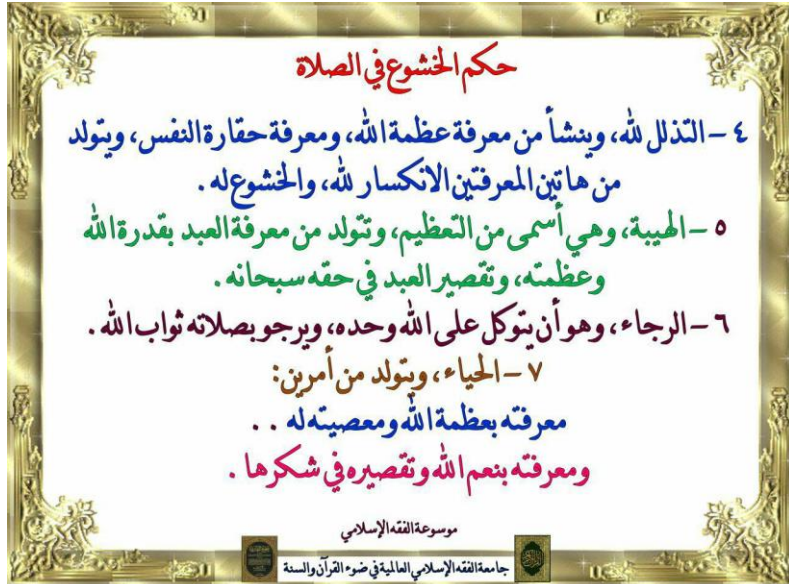 حكم الخشوع في الصلاة
٤ – التذلل لله، وينشأ من معرفة عظمة الله، ومعرفة حقارة النفس، ويتولد
من هاتين المعرفتين الانكسار لله، والخشوع له .
٥ – الهيبة، وهي أسمى من التعظيم، وتتولد من معرفة العبد بقدرة الله
وعظمته، وتقصير العبد في حقه سبحانه .
٦ – الرجاء، وهو أن يتوكل على الله وحده، ويرجو بصلاته ثواب الله .
٧ – الحياء، ويتولد من أمرين:
معرفته بعظمة الله ومعصيته له . .
ومعرفته بنعم الله وتقصيره في شكرها .
موسوعة الفقه الإسلامي
جامعة الفقه الإسلامي العالمية في ضوء القرآن والسنة